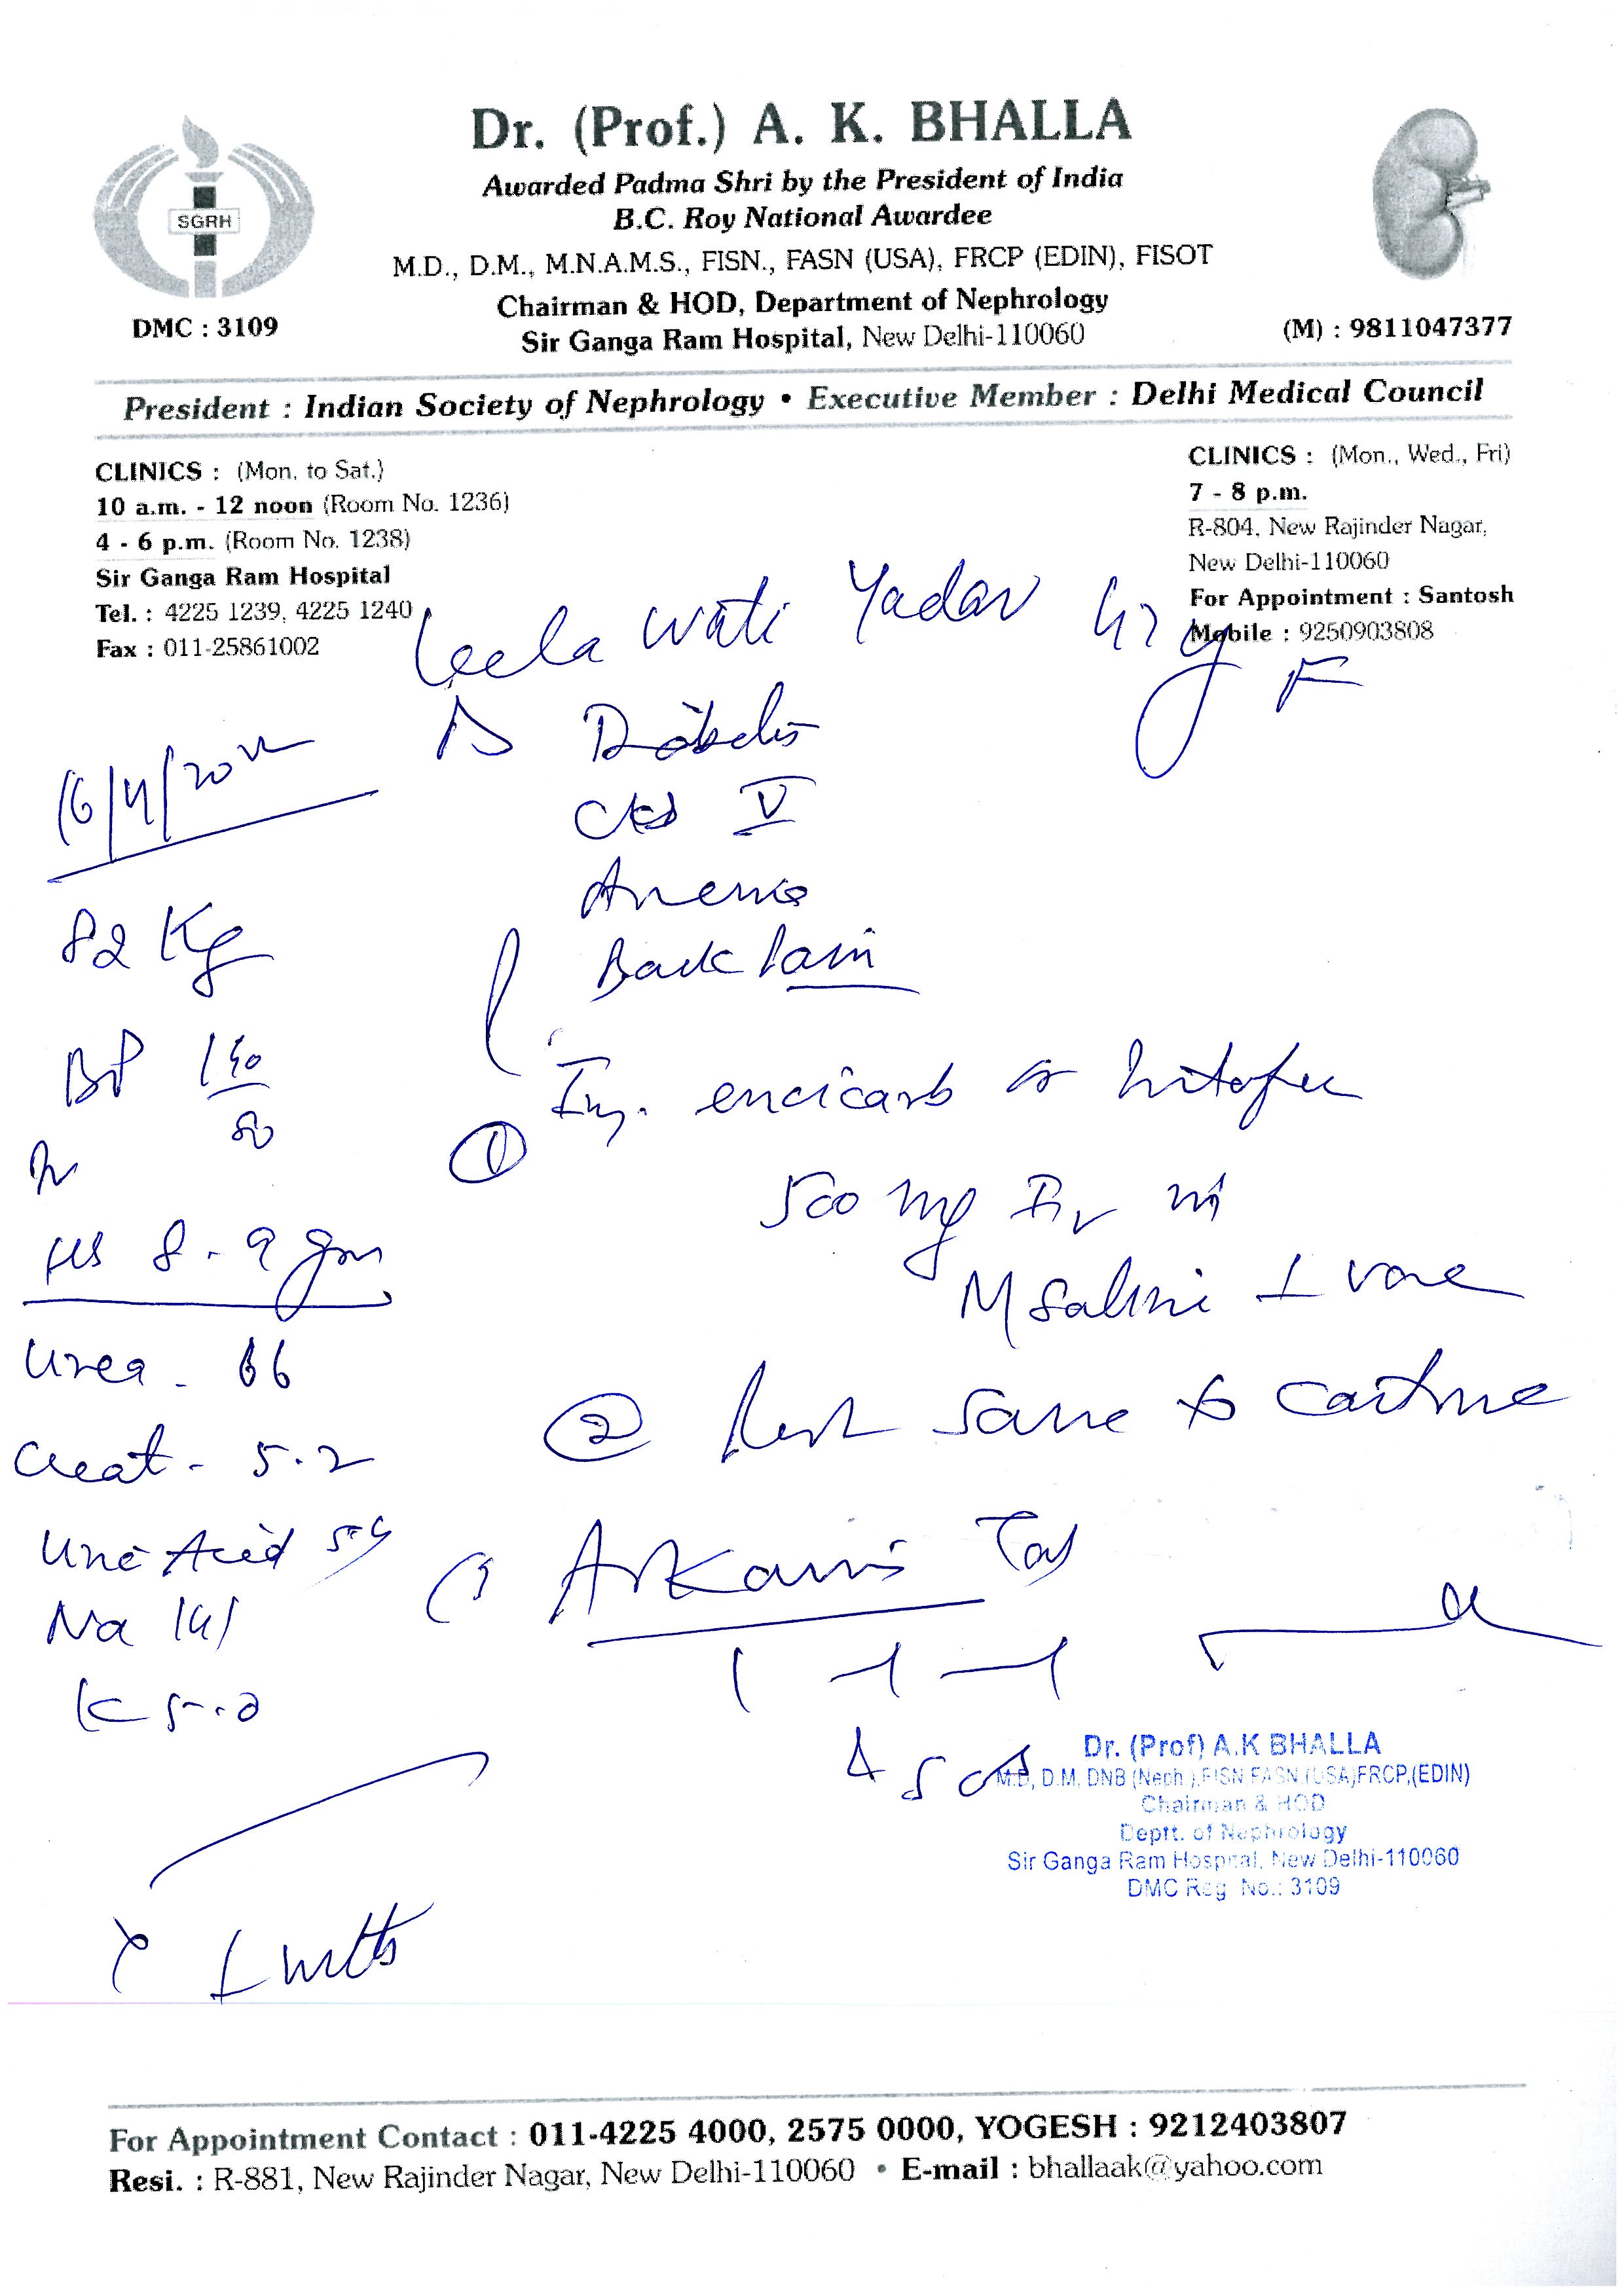 Dr. (Prof.) A. K. BHALLA
Awarded Padma Shri by the President of India
B.C. Roy National Awardee
M.D., D.M., M.N.A.M.S., FISN., FASN (USA), FRCP (EDIN), FISOT
Chairman & HOD, Department of Nephrology
Sir Ganga Ram Hospital, New Delhi-110060
SGRH
DMC : 3109
(M) : 9811047377
President : Indian Society of Nephrology • Executive Member : Delhi Medical Council
CLINICS : (Mon. to Sat.)
10 a.m. - 12 noon (Room No. 1236)
4 - 6 p.m. (Room No. 1238)
Sir Ganga Ram Hospital
Tel. : 4225 1239, 4225 1240
Fax : 011-25861002
CLINICS : (Mon., Wed., Fri)
7 - 8 p.m.
R-804, New Rajinder Nagar,
New Delhi-110060
For Appointment : Santosh
Mobile : 9250903808
Leela Wati Yadav F
16/4/2022
82 Kg
BP 140/80
8.9 gm
Urea - 66
Creat - 5.2
Uric Acid
Na 141
K 5.0
CKD V
Anemia
Back Pain
① Inj. encicarb or
500 mg IV in
N Saline
② Rest same
Tab
1-1-1
Dr. (Prof) A.K BHALLA
M.D, D.M, DNB (Neph.), FISN FASN (USA)FRCP,(EDIN)
Chairman & HOD
Deptt. of Nephrology
Sir Ganga Ram Hospital, New Delhi-110060
DMC Reg No.: 3109
For Appointment Contact : 011-4225 4000, 2575 0000, YOGESH : 9212403807
Resi. : R-881, New Rajinder Nagar, New Delhi-110060 • E-mail : bhallaak@yahoo.com